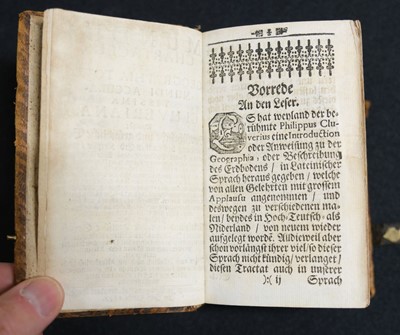 Vorrede
An den Leser.
ES hat weyland der be-
rühmte Philippus Clu-
verius eine Introduction
oder Anweisung zu der
Geographia, oder Beschreibung
des Erdbodens / in Lateinischer
Sprach heraus gegeben / welche
von allen Gelehrten mit grossem
Applausu angenommen / und
deswegen zu verschiedenen ma-
len / beydes in Hoch-Teutsch- als
Niderland / von neuem wieder
aufgelegt wordē. Alldieweil aber
schon vorlängst ihrer viel / so dieser
Sprach nicht kündig / verlanget /
diesen Tractat auch in unserer
):( ij Sprach